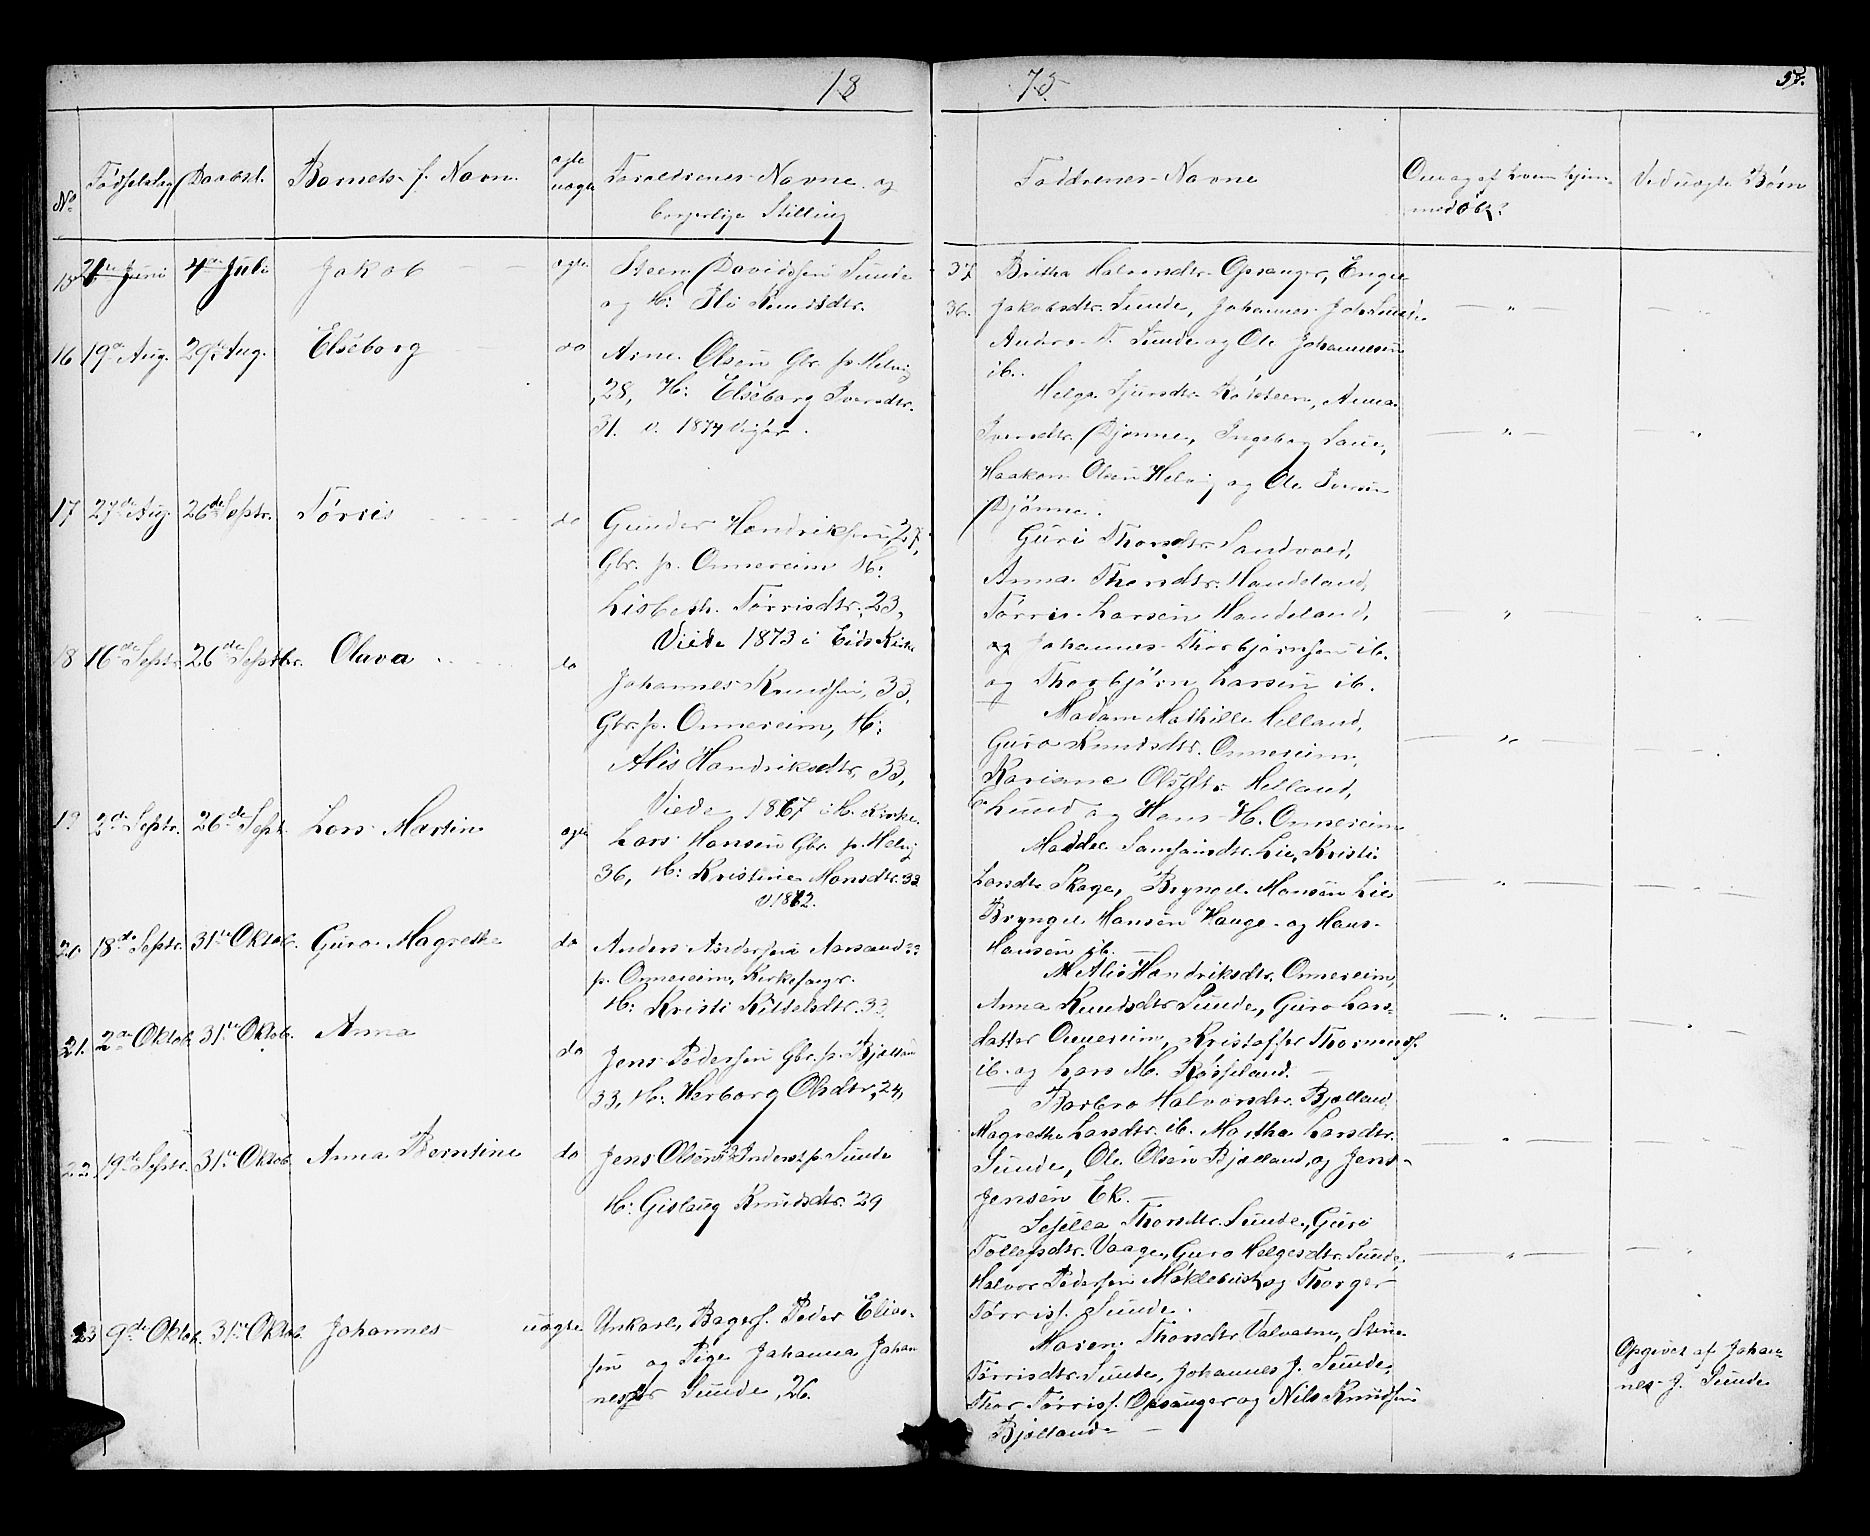 18 75. 57.
No Fødselsdag Daabsd. Barnets f. Navn ægte uægte Forældrenes Navne og borgerlige Stilling
Faddrenes Navne
Om og af hvem hjemmedøbt?
Ved uægte Børn
15 21de Juni 4de Juli Jakob ægte Steen Davidsen Sunde 37
og H: Ilo Knudsdtr. 36.
Britha Halvorsdtr. Opsanger, Engel
Jakobsdtr. Sunde, Johannes J. Sunde
Anders T. Sunde og Ole Johannesen
ib.
16 19de Aug. 29de Aug. Elseborg do Arne Olsen Gbr. p. Helvig
28, H: Elseborg Iversdtr.
31. v. 1874
Helga Sjursdtr. , Anna
Iversdtr. Djønne, Ingeborg
Haakon Olsen Helvig og Ole Iversen
Djønne.
17 27de Aug. 26de Septr. Tørres do Gunder Hendriksen 27,
Gbr. p. Onnereim H:
Lisbeth Tørrisdtr. 23,
Viede 1873 i Eids Kirke
Guri Thorsdtr. Sandvold,
Anna Thorsdtr. Handeland,
Tørris Larsen Handeland,
og Johannes Thorbjørnsen ib.
og Thorbjørn Larsen ib.
18 16de Septr. 26de Septbr. Olava do Johannes Knudsen, 33,
Gbr. p. Onnereim, H:
Alis Handriksdtr. 33,
Viede 1867 i H. Kirke.
Madam Mathilde Helland,
Guro Knudsdtr. Onnereim,
Kariane Olsdtr. Helland,
Lund og Hans H. Onnereim
19 2de Septr. 26de Sept. Lars Martin ægte Lars Hansen Gbr. p. Helvig
36, H: Kristine Monsdtr. 33
v. 1872.
Madde Samsonsdtr. Lie, Kristi
Larsdtr. Skage, Bryngel Monsen Lie
Bryngel Hansen Hauge og Hans
Hansen ib.
20 18de Septr. 31te Oktob. Guro Magrethe do Anders Andersen
p. Onnereim, Kirkesanger.
H: Kristi Kittelsdtr. 33.
M Alis Handriksdtr. Onnereim,
Anna Knudsdtr. Sunde, Guro Lars-
datter Onnereim, Kristoffer
ib. og Lars M. Røsseland.
21. 2de Oktob. 31te Oktob. Anna do Jens Pedersen Gbr. p. Bjelland
33, H: Herborg Olsdtr, 24,
Barbro Halvorsdtr. Bjelland
Magrethe Larsdtr. ib. Martha Larsdtr.
Sunde, Ole Olsen Bjælland, og Jens
Jensen Ek.
22. 19de Septr. 31te Oktob. Anna Berntine do Jens Olsen Inderst p. Sunde
H: Gislaug Knudsdtr. 29
Sesella Thorsdtr. Sunde, Guro
Tollefsdtr. Vaage, Guro Helgesdtr. Sunde,
Halvor Pedersen Møklebust og Thorger
Tørriss. Sunde.
23 9de Oktob. 31te Oktob. Johannes uægte Unkarl, Peder Elias-
sen og Pige Johanna Johan
nesdtr Sunde, 26.
Maren Thorsdtr. Valvatne, Stine
Tørrisdtr. Sunde, Johannes J. Sunde,
Thor Tørriss. Opsanger og Nils Knudsen
Bjelland
Opgivet af Johan-
nes J. Sunde